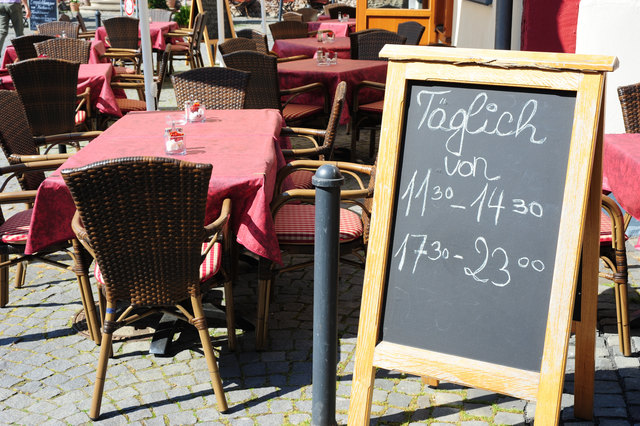 Täglich
von
11³⁰ - 14³⁰
17³⁰ - 23⁰⁰